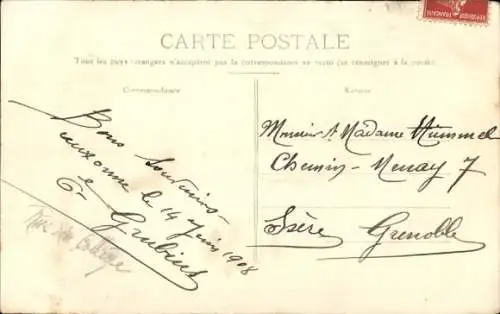 CARTE POSTALE
Tous les pays étrangers n'acceptent pas la correspondance au recto (se renseigner à la poste)
Correspondance
Adresse
Bons Souvenirs
le 14 juin 1908
G Grubius
Monsieur & Madame Hummel
Chemin - Menay 7
Isère Grenoble